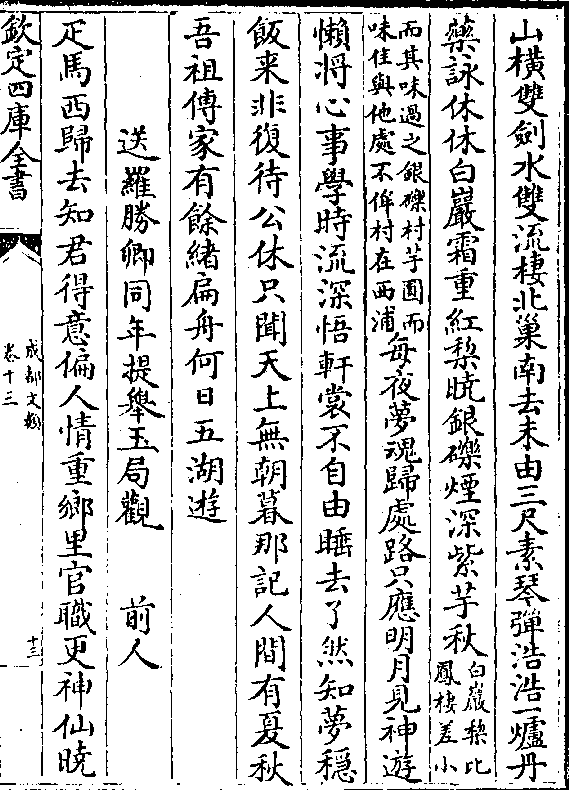 山橫雙劍水雙流棲北巢南去未由三尺素琴彈浩浩一爐丹
藥詠休休白巖霜重紅梨曉銀礫煙深紫芋秋白巖梨比鳳棲差小
而其味過之銀礫村芋圓而味佳與他處不侔村在西浦每夜夢魂歸處路只應明月見神遊
懶將心事學時流深悟軒裳不自由睡去了然知夢穩
飯来非復待公休只聞天上無朝暮那記人間有夏秋
吾祖傳家有餘緒扁舟何日五湖遊
送羅勝卿同年提舉玉局觀　前人
疋馬西歸去知君得意偏人情重鄉里官職更神仙曉
欽定四庫全書
成都文類
卷十三
十三